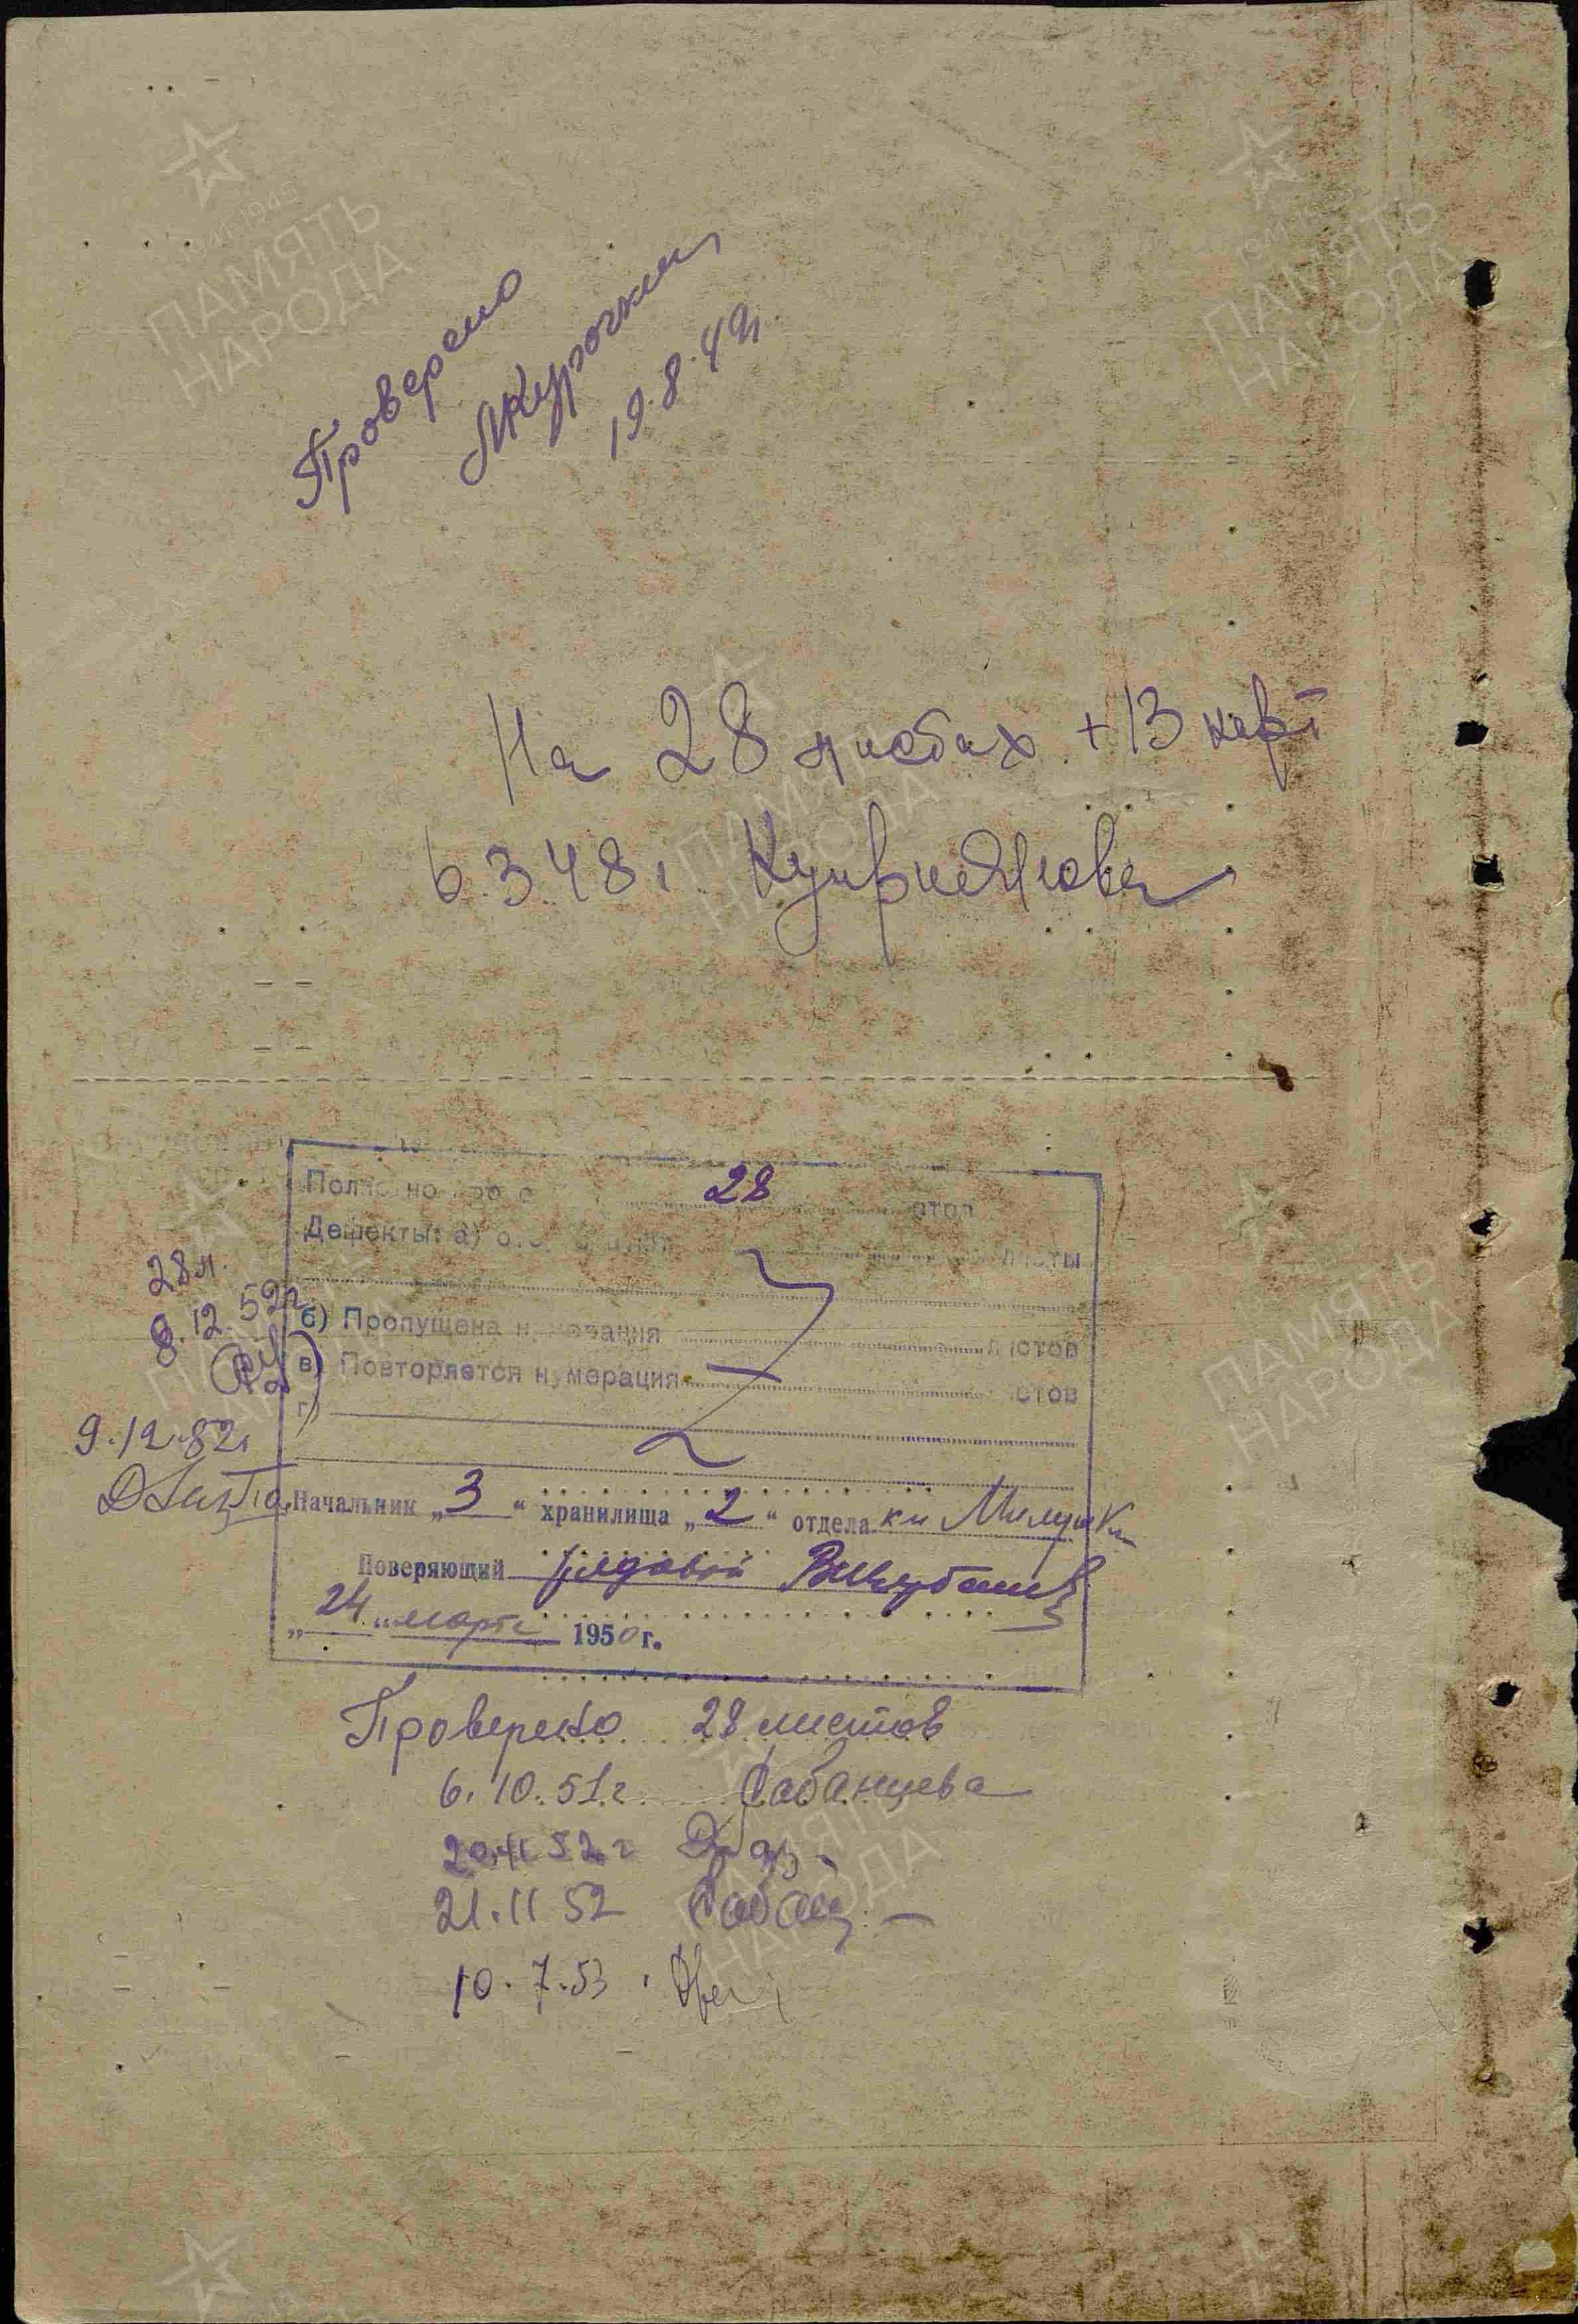 Проверено
Курочкин
19.8.49г.
На 28 листах + 13 карт
6.3.48г. Куприянова
28
Дефекты: а) листы
б) Пропущена нумерация листов
в) Повторяется нумерация листов
г)
28 л.
8.12.52г
9.12.52г
Начальник „3“ хранилища „2“ отдела
Поверяющий рядовой
„24“ марта 1950 г.
Проверено 28 листов
6.10.51г Сабанцева
20.11 52 г
21.11 52 Сабанц
10.7.53
1941-1945
ПАМЯТЬ
НАРОДА